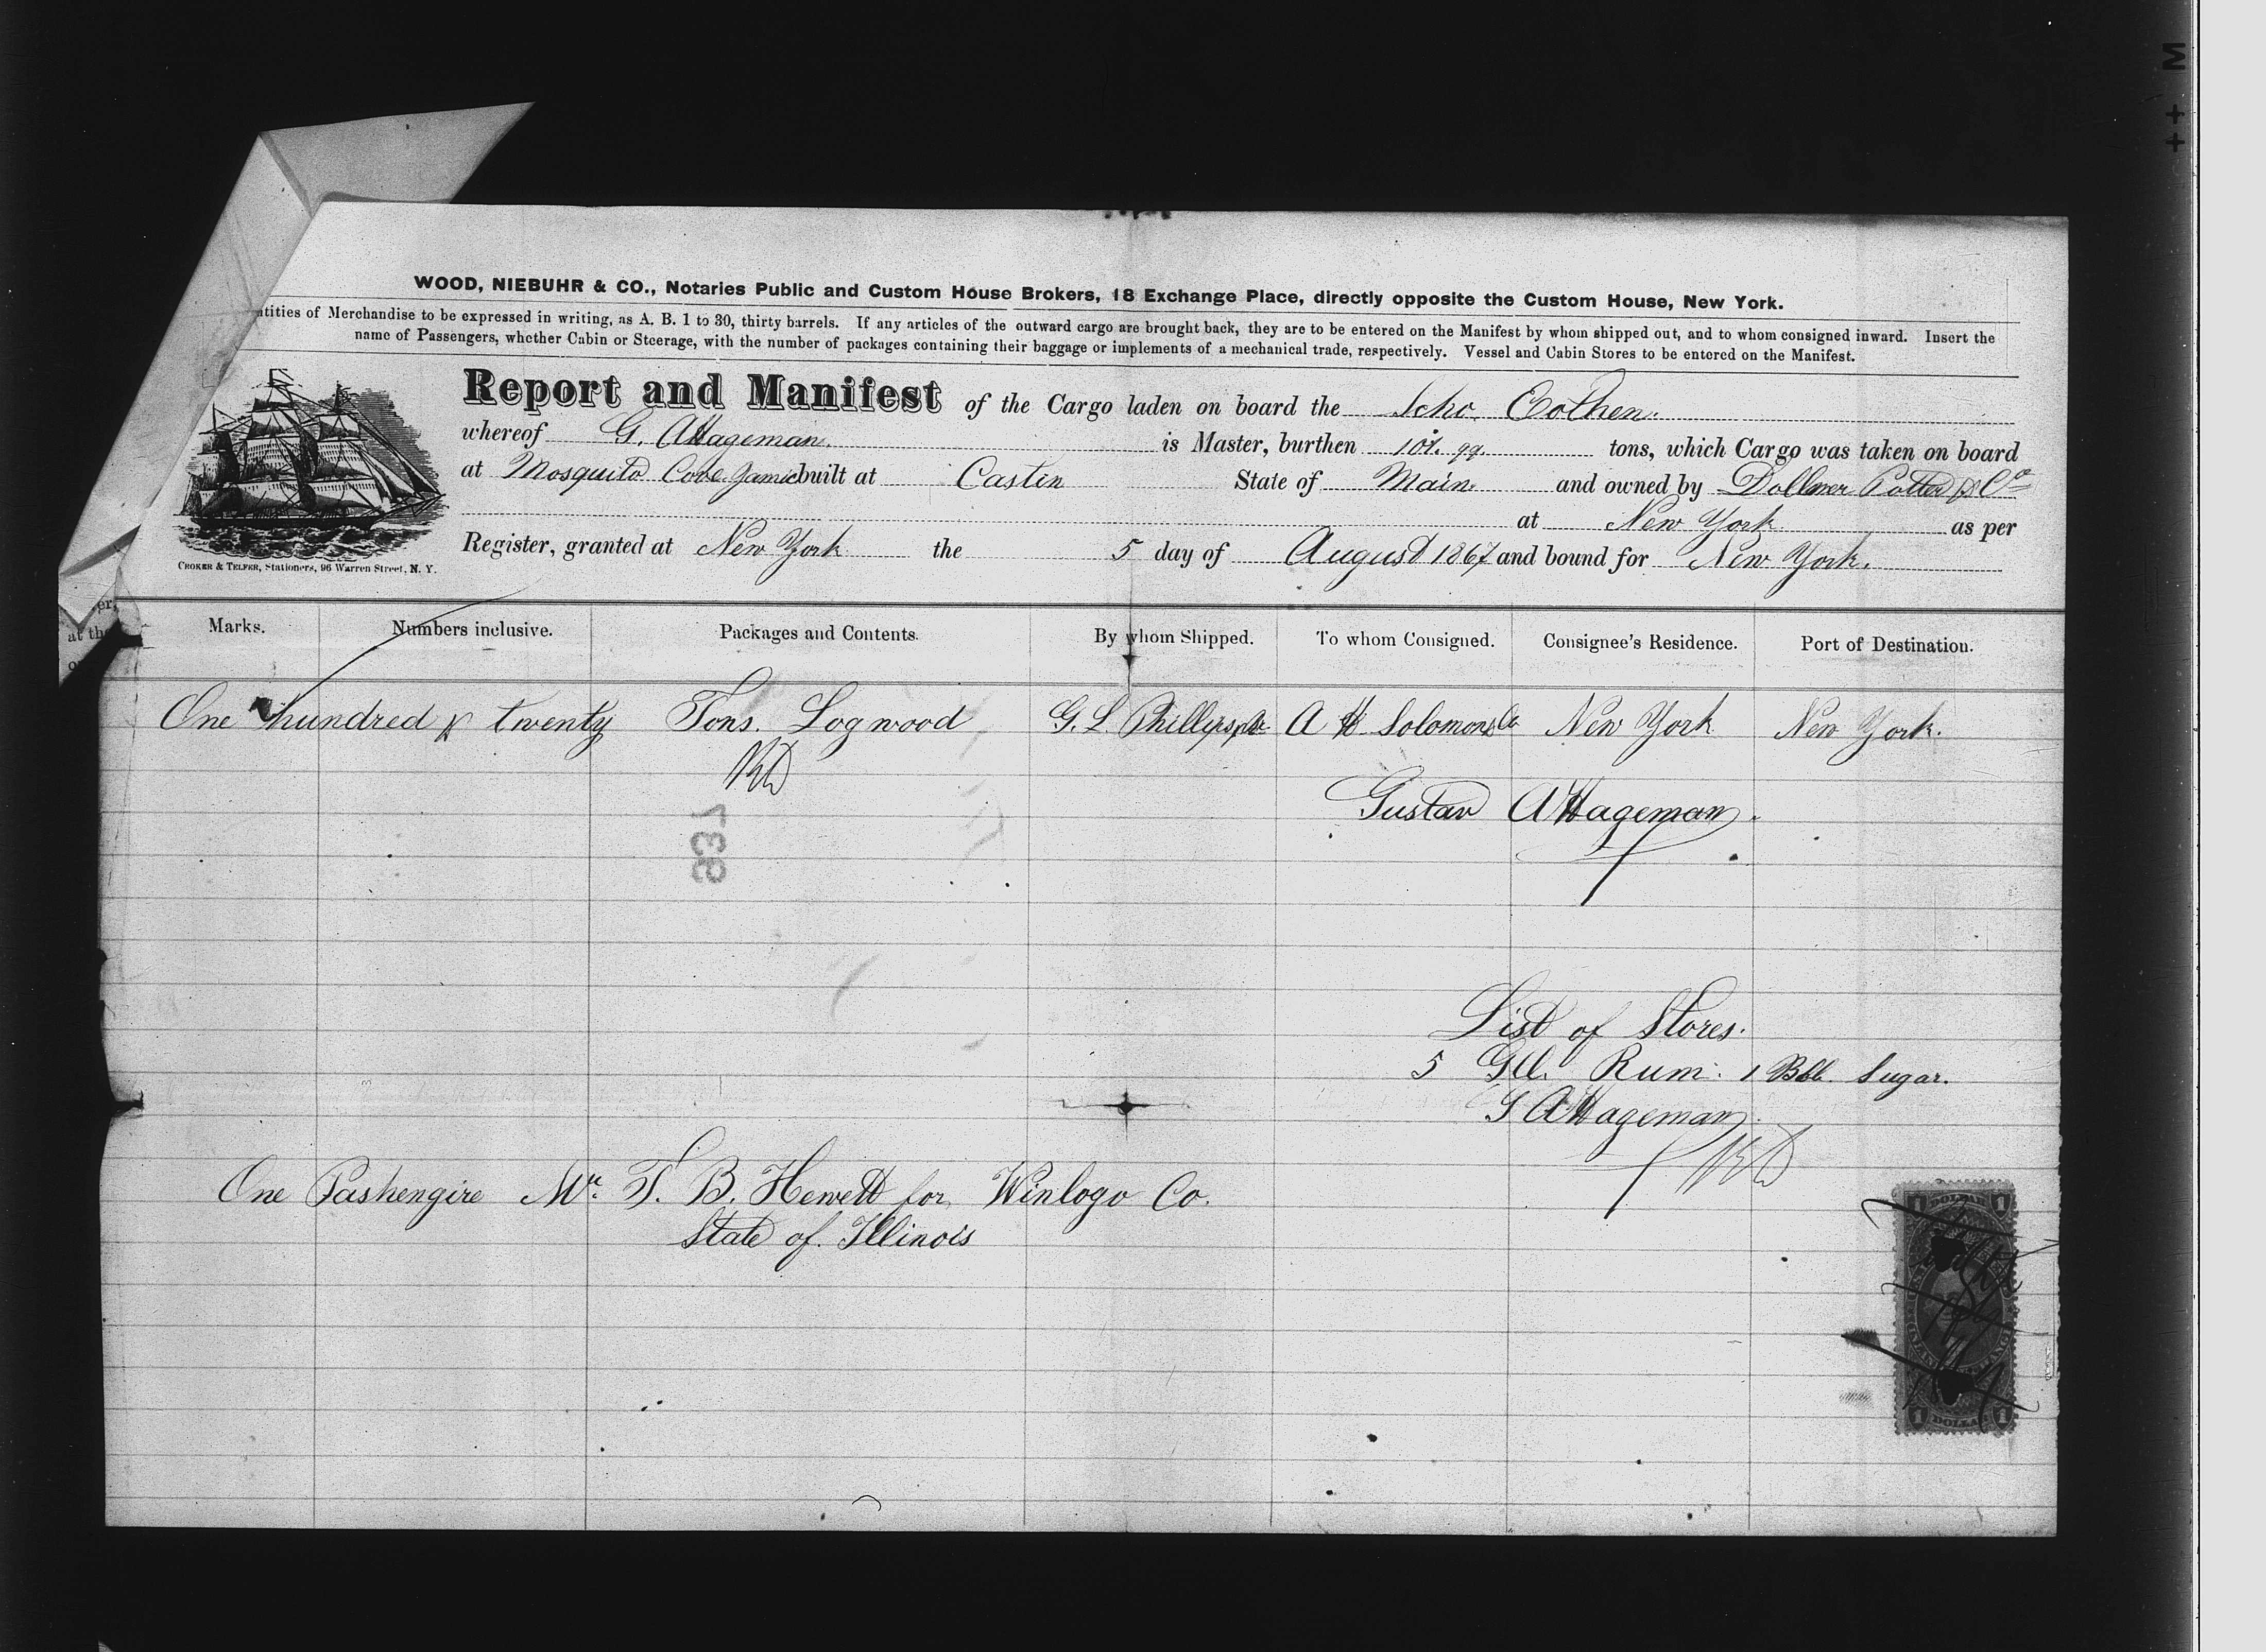 WOOD, NIEBUHR & CO., Notaries Public and Custom House Brokers, 18 Exchange Place, directly opposite the Custom House, New York.
of Merchandise to be expressed in writing, as A. B. 1 to 30, thirty barrels. If any articles of the outward cargo are brought back, they are to be entered on the Manifest by whom shipped out, and to whom consigned inward. Insert the
name of Passengers, whether Cabin or Steerage, with the number of packages containing their baggage or implements of a mechanical trade, respectively. Vessel and Cabin Stores to be entered on the Manifest.
Report and Manifest of the Cargo laden on board the Schr Eothen.
whereof G. A Hageman. is Master, burthen 101. 99 tons, which Cargo was taken on board
at Mosquito Cove Jamic built at Castin State of Main and owned by Dollner Potter & Co
at New York as per
Register, granted at New York the 5 day of August 1867 and bound for New York.
CROKER & TELFER, Stationers, 96 Warren Street, N. Y.
Marks. Numbers inclusive. Packages and Contents. By whom Shipped. To whom Consigned. Consignee's Residence. Port of Destination.
One hundred & twenty Tons. Logwood G. L. Phillips & Co A H Solomon & Co New York New York.
937
Gustav A Hageman.
List of Stores.
5 Gll. Rum. 1 Bbl. Sugar.
G A Hageman.
One Pashengire Mr. T. B. Hewett for Winlogo Co.
State of Illinois
1 DOLLAR 1
1 DOLLAR 1